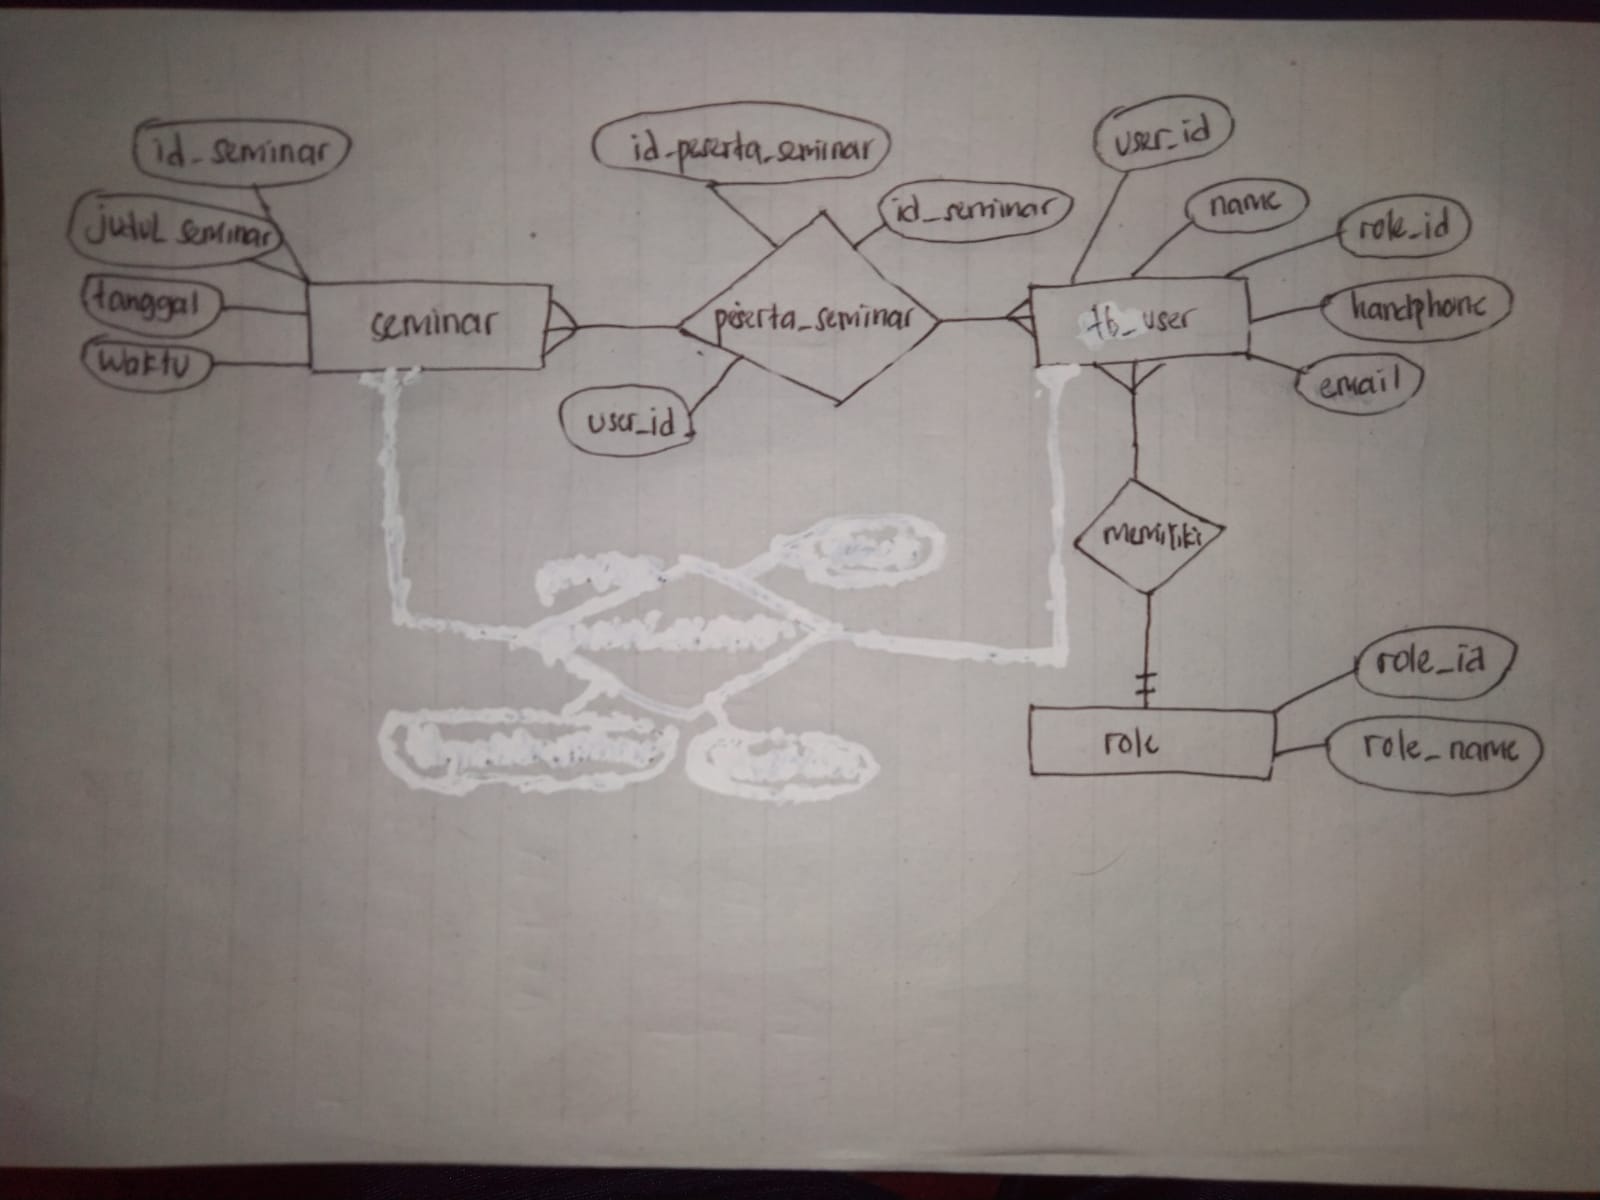 id_seminar
judul seminar
tanggal
waktu
seminar
id_peserta_seminar
id_seminar
peserta_seminar
user_id
user_id
name
role_id
handphone
email
tb_user
memiliki
role
role_id
role_name